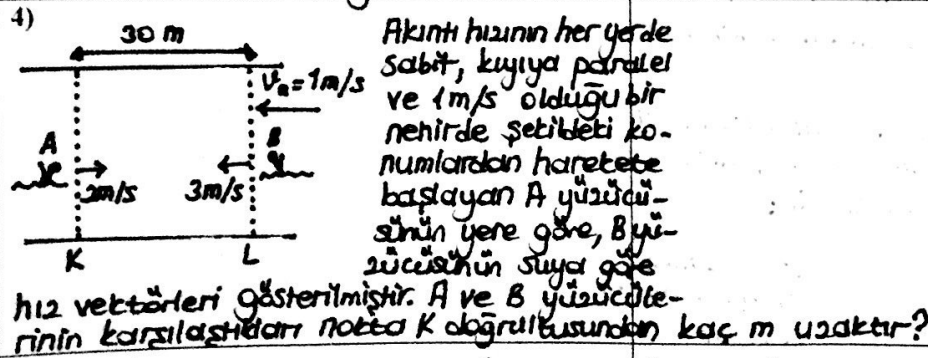 4)
30 m
Akıntı hızının her yerde
sabit, kıyıya paralel
ve 1m/s olduğu bir
nehirde şekildeki ko-
numlardan harekete
başlayan A yüzücü-
sünün yere göre, B yü-
zücüsünün suya göre
hız vektörleri gösterilmiştir. A ve B yüzücüle-
rinin karşılaştıkları nokta K doğrultusundan kaç m uzaktır?
Va=1m/s
A
B
2m/s
3m/s
K
L